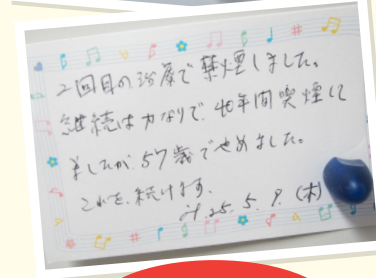 2回目の治療で禁煙しました。
継続は力なりで、40年間喫煙して
ましたが、57歳でやめました。
これを、続けます。
H.25.5.9.(木)